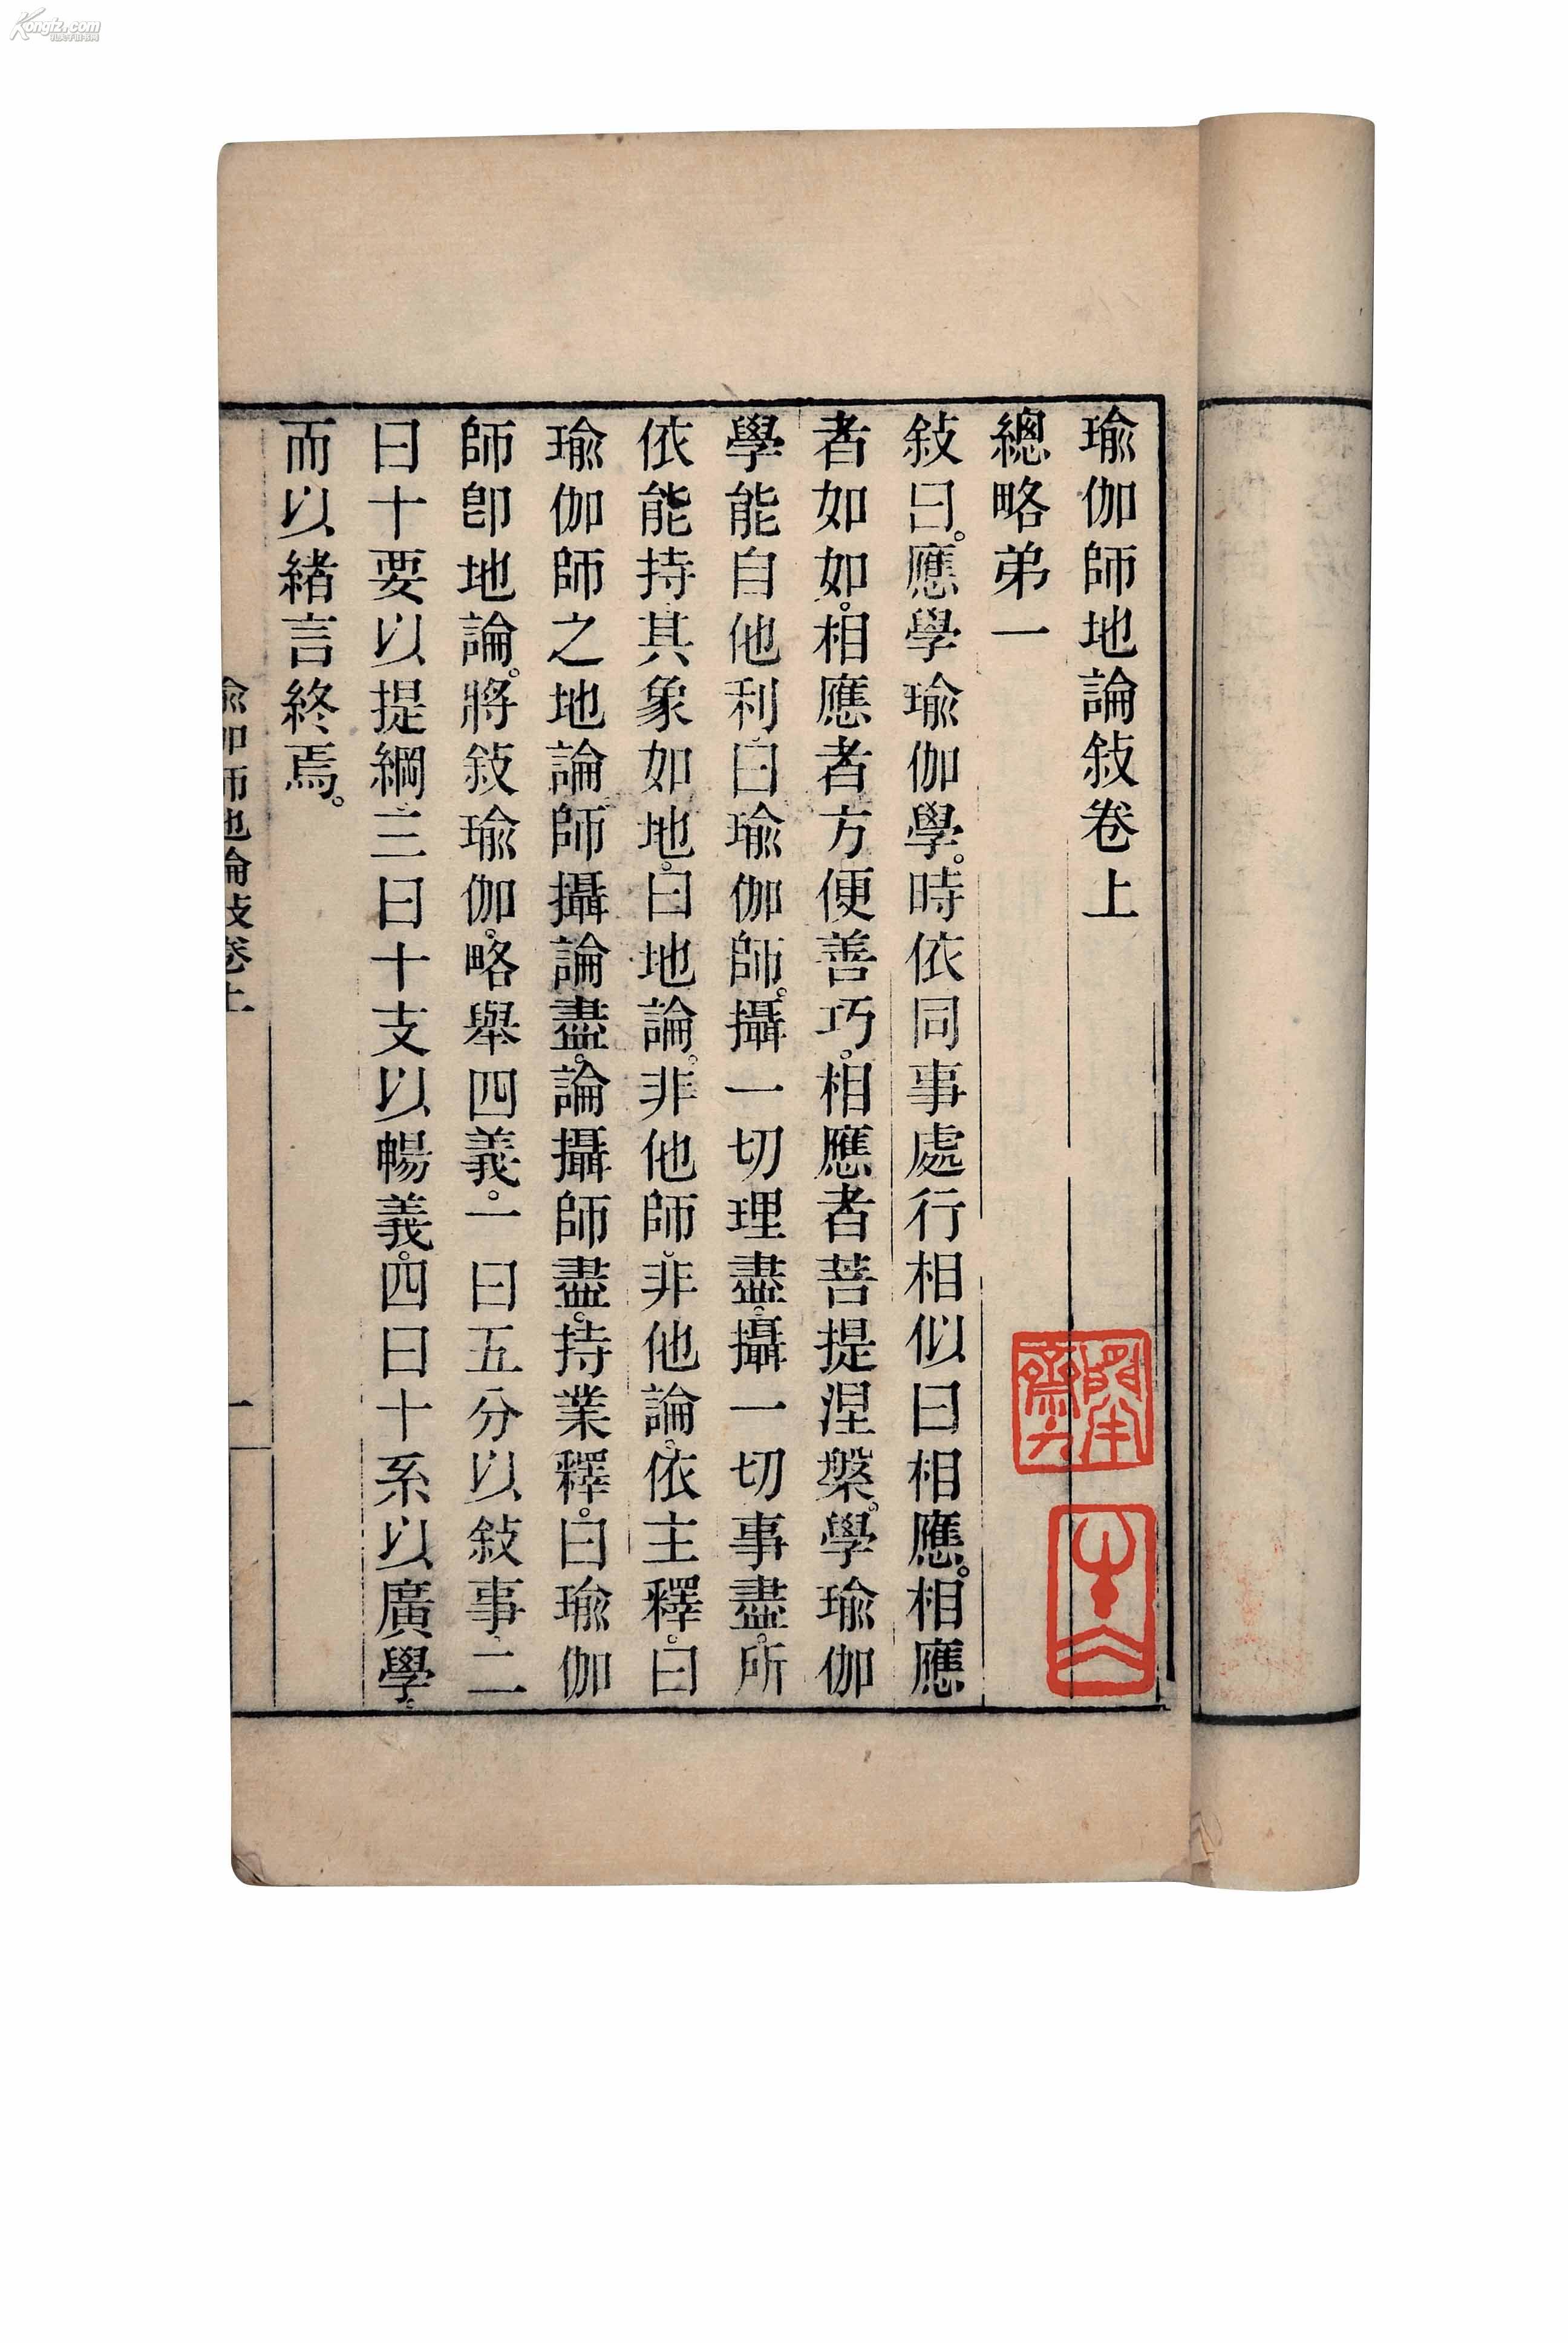 瑜伽師地論敍卷上
總略弟一
敍曰。應學瑜伽學。時依同事處行相似曰相應。相應
者如如。相應者方便善巧。相應者菩提涅槃。學瑜伽
學能自他利、曰瑜伽師。攝一切理盡。攝一切事盡。所
依能持、其象如地。曰地論。非他師、非他論。依主釋。曰
瑜伽師之地論師攝論盡。論攝師盡。持業釋。曰瑜伽
師卽地論。將敍瑜伽。略舉四義。一曰五分以敍事、二
曰十要以提綱、三曰十支以暢義。四曰十系以廣學、
而以緒言終焉。
瑜伽師地論敍卷上
一
Kongfz.com